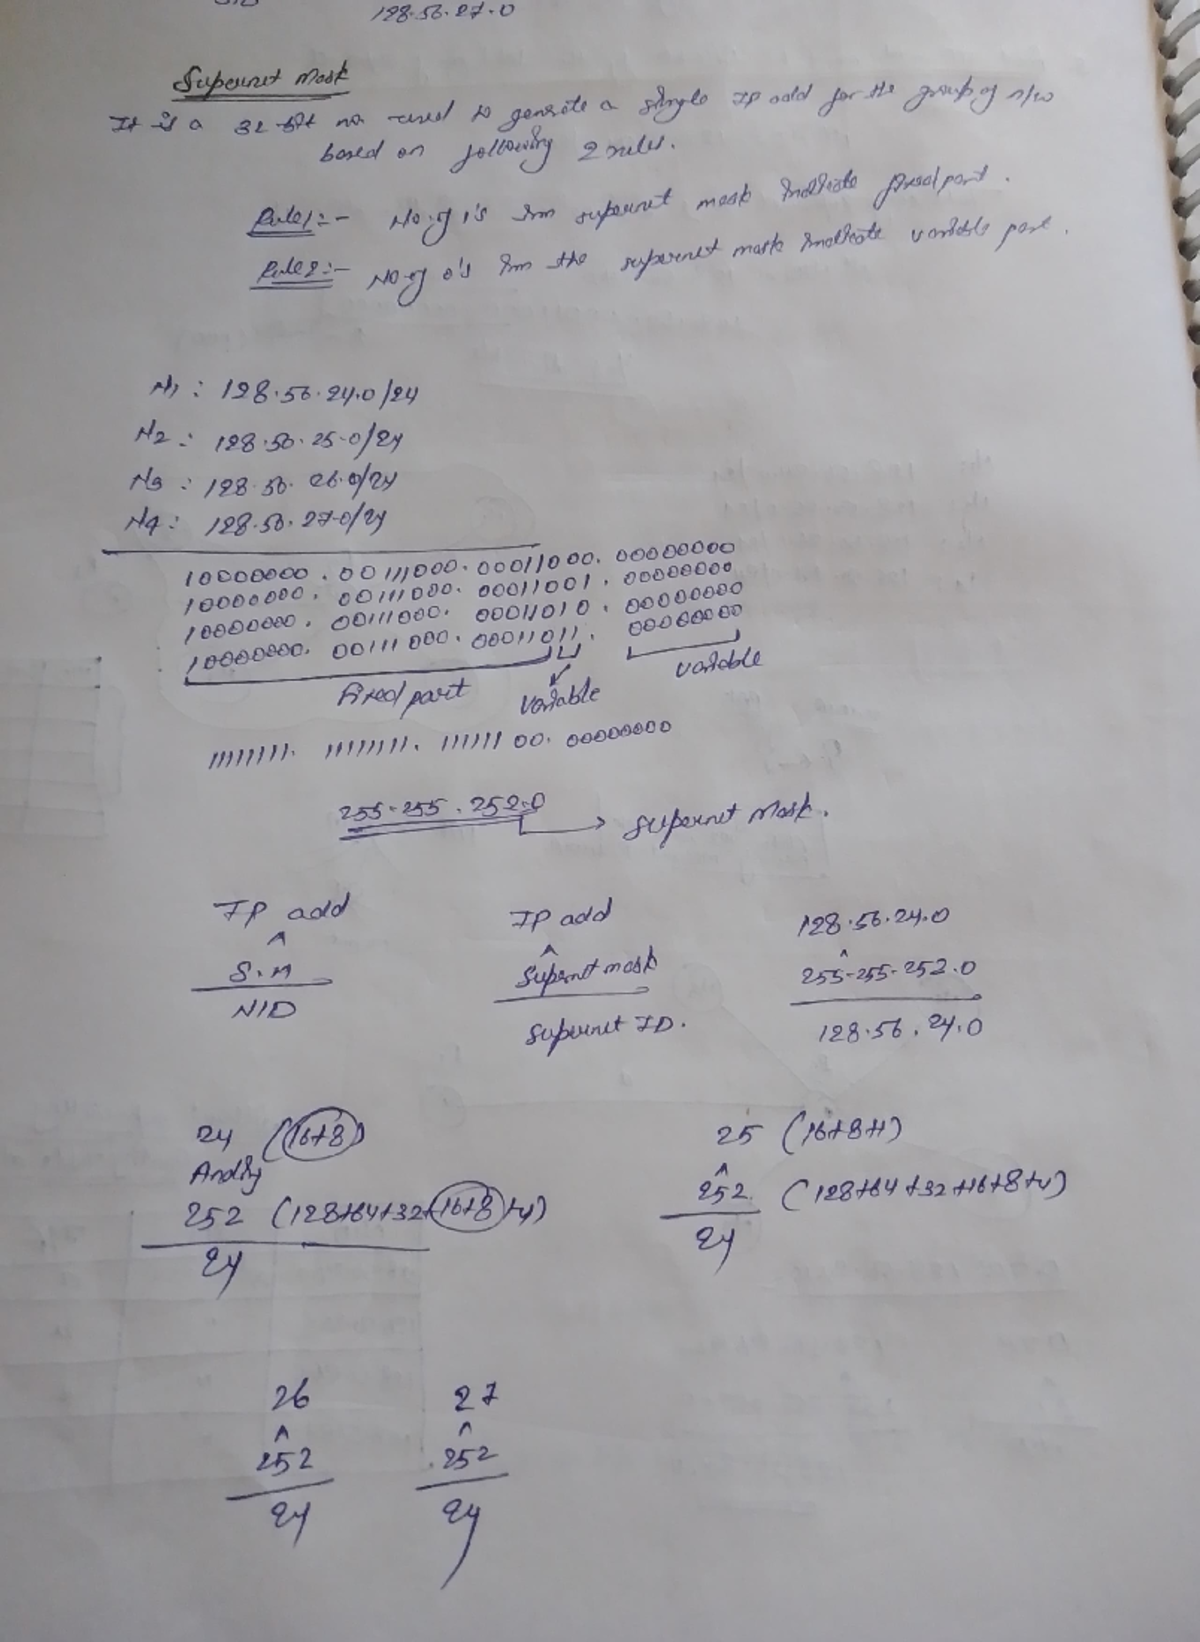 128.56.27.0
Supernet Mask
It is a 32 bit no used to generate a single IP add for the group of n/w
based on following 2 rules.
Rule1:- No. of 1's im supernet mask indicate fixed part.
Rule2:- No of 0's im the supernet mask indicate variable part.
N1 : 128.56.24.0/24
N2 : 128.56.25.0/24
N3 : 128.56.26.0/24
N4 : 128.56.27.0/24
10000000.00111000.00011000.00000000
10000000.00111000.00011001.00000000
10000000.00111000.00011010.00000000
10000000.00111000.00011011.00000000
Fixed part variable variable
11111111.11111111.11111100.00000000
255.255.252.0 → Supernet Mask.
IP add IP add 128.56.24.0
^ ^ ^
S.M Supernet mask 255.255.252.0
NID Supernet ID. 128.56.24.0
24 (16+8) 25 (16+8+1)
Anding ^
252 (128+64+32+16+8+4) 252 (128+64+32+16+8+4)
24 24
26 27
^ ^
252 252
24 24